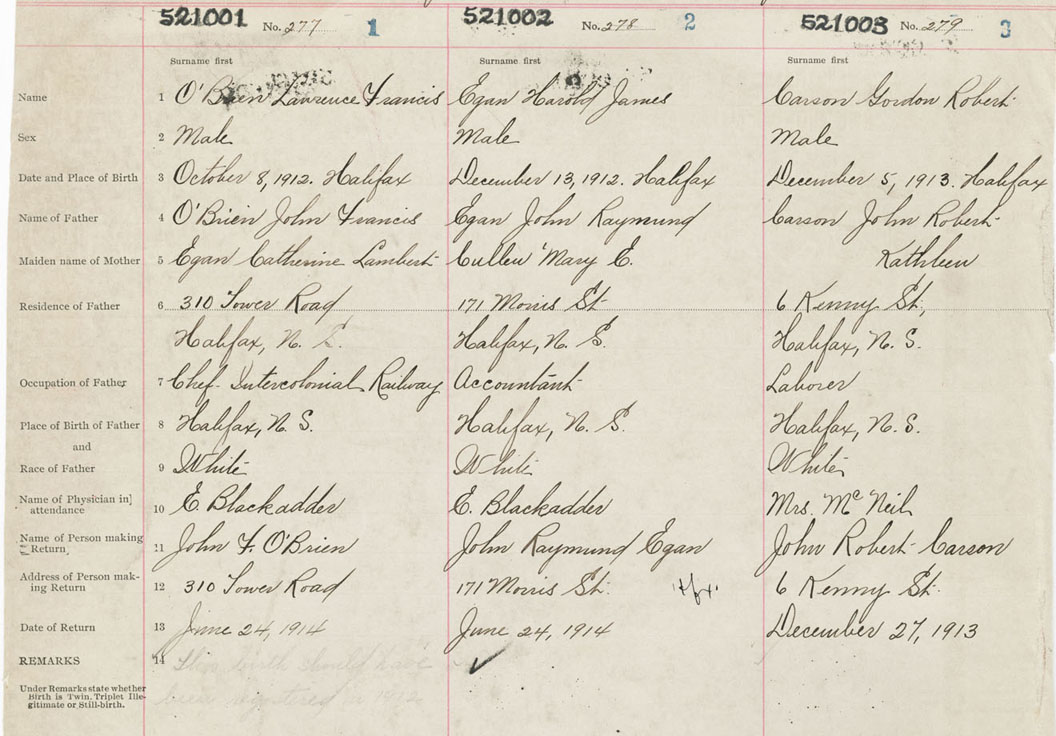 521001 No. 277 1 521002 No. 278 2 521003 No. 279 3
Surname first Surname first Surname first
Name 1 O'Brien Lawrence Francis Egan Harold James Carson Gordon Robert
Sex 2 Male Male Male
Date and Place of Birth 3 October 8, 1912. Halifax December 13, 1912. Halifax December 5, 1913. Halifax
Name of Father 4 O'Brien John Francis Egan John Raymund Carson John Robert
Maiden name of Mother 5 Egan Catherine Lambert Cullen Mary E. Kathleen
Residence of Father 6 310 Tower Road 171 Morris St. 6 Kenny St.,
Halifax, N. S. Halifax, N. S. Halifax, N. S.
Occupation of Father 7 Chef. Intercolonial Railway Accountant Laborer
Place of Birth of Father 8 Halifax, N. S. Halifax, N. S. Halifax, N. S.
and
Race of Father 9 White White White
Name of Physician in 10 E. Blackadder E. Blackadder Mrs. McNeil
attendance
Name of Person making 11 John F. O'Brien John Raymund Egan John Robert Carson
Return
Address of Person mak- 12 310 Tower Road 171 Morris St. Hfx. 6 Kenny St.
ing Return
Date of Return 13 June 24, 1914 June 24, 1914 December 27, 1913
REMARKS 14 This birth should have
been registered in 1912
Under Remarks state whether
Birth is Twin, Triplet Ille-
gitimate or Still-birth.